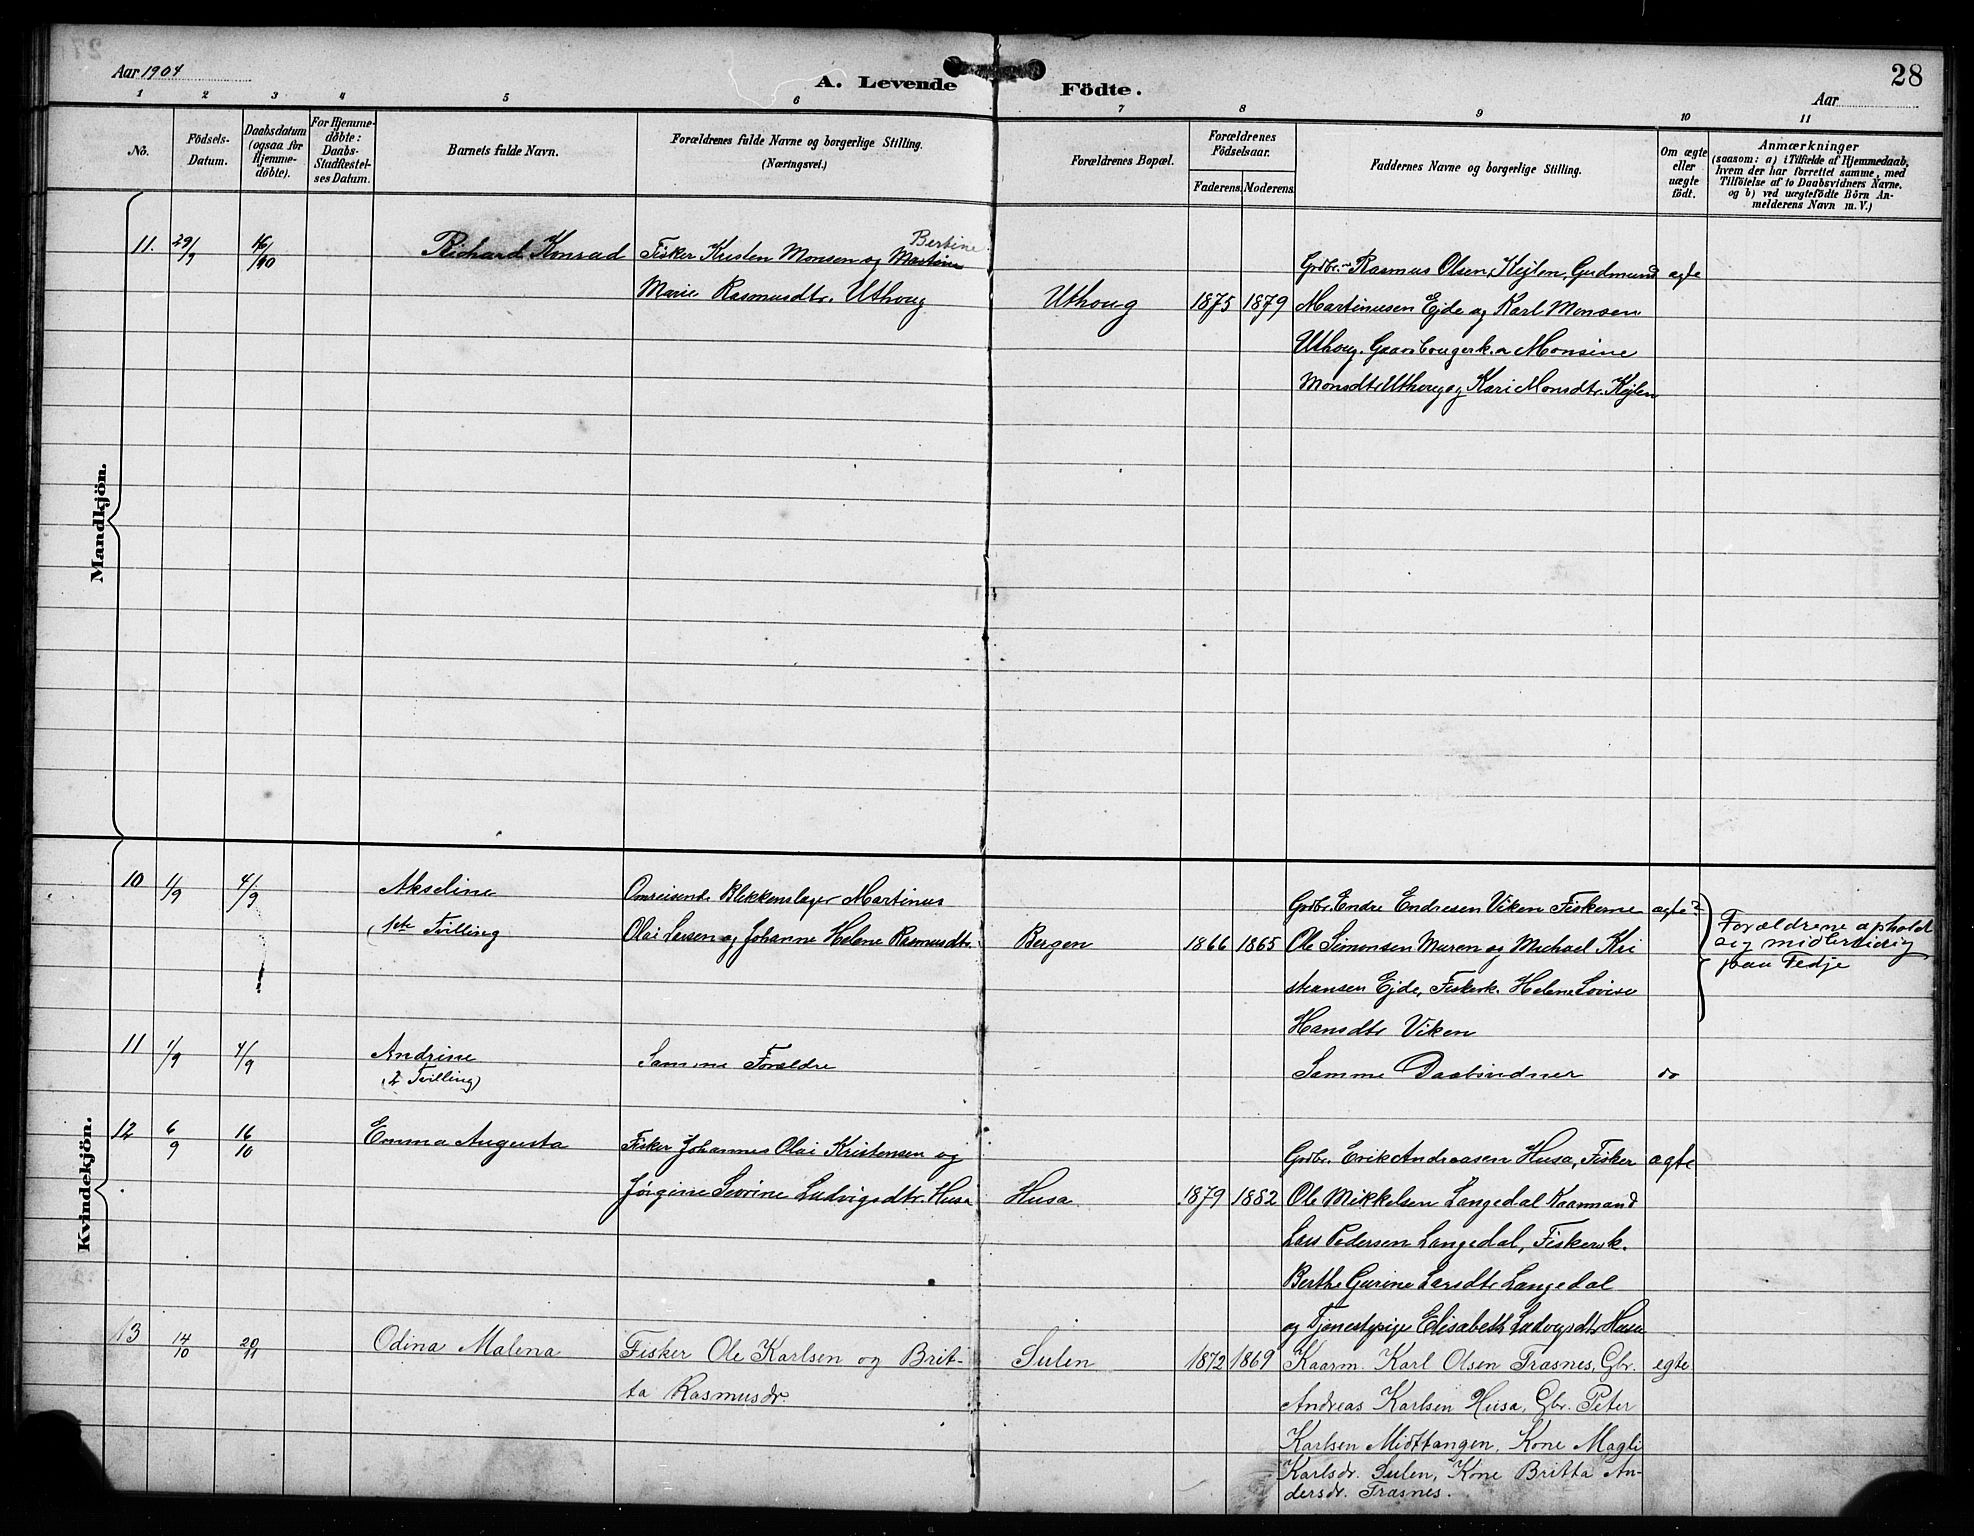 Aar 1904
A. Levende Födte.
Aar
28
1 2 3 4 5 6 7 8 9 10 11
No.
Födsels-
Datum.
Daabsdatum
(ogsaa for
Hjemme-
döbte).
For Hjemme-
døbte:
Daabs-
Stadfæstel-
ses Datum.
Barnets fulde Navn.
Forældrenes fulde Navne og borgerlige Stilling.
(Næringsvei.)
Forældrenes Bopæl.
Forældrenes
Födselsaar.
Faderens. Moderens.
Faddernes Navne og borgerlige Stilling.
Om ægte
eller
uægte
födt.
Anmærkninger
(saasom: a) i Tilfælde af Hjemmedaab,
hvem der har forrettet samme, med
Tilföielse af to Daabsvidners Navne.
og b) ved uægtefödte Börn An-
melderens Navn m. V.)
Mandkjön.
11. 29/9 16/10 Richard Konrad
Bertine
Fisker Kristen Monsen og Martine
Marie Rasmusdtr. Uthoug
Uthoug 1875 1879
Grdbr. Rasmus Olsen, Kejlen, Gudmund
Martinusen Ejde og Karl Monsen
Uthoug. Gaardbrugerk. Monsine
Monsdtr Uthoug og Kari Monsdtr. Kejlen
ægte
Kvindekjön.
10 1/9 4/9 Akseline
(1ste Tvilling
Omreisende Blikkenslager Martinus
Olai Larsen og Johanne Helene Rasmusdtr.
Bergen 1866 1865
Grdbr. Endre Endresen Viken Fiskerne
Ole Simonsen Muren og Michael Kri
stiansen Ejde, Fiskerk. Helene Lovise
Hansdtr Viken
ægte?
Forældrene opholdt
sig midlertidig
paa Fedje
11 1/9 4/9 Andrine
(2 Tvilling)
Samme Forældre
Samme Daabsvidner
do
12 6/9 16/10 Emma Augusta
Fisker Johannes Olai Kristensen og
Jørgine Severine Ludvigsdtr. Husa
Husa 1879 1882
Grdbr. Erik Andreasen Husa, Fisker
Ole Mikkelsen Langedal Kaarmand
Lars Pedersen Langedal, Fiskerk.
Berthe Gurine Larsdtr Langedal
og Tjenestepige Elisabeth Ludvigsdtr Husa
ægte
13 14/10 20/11 Odina Malena
Fisker Ole Karlsen og Brit-
ta Rasmusdr.
Sulen 1872 1869
Kaarm. Karl Olsen Træsnes, Gbr.
Andreas Karlsen Husa, Gbr. Peter
Karlsen Midttangen, Kone Magli
Karlsdr. Sulen, Kone Britta An-
dersdr. Træsnes.
egte